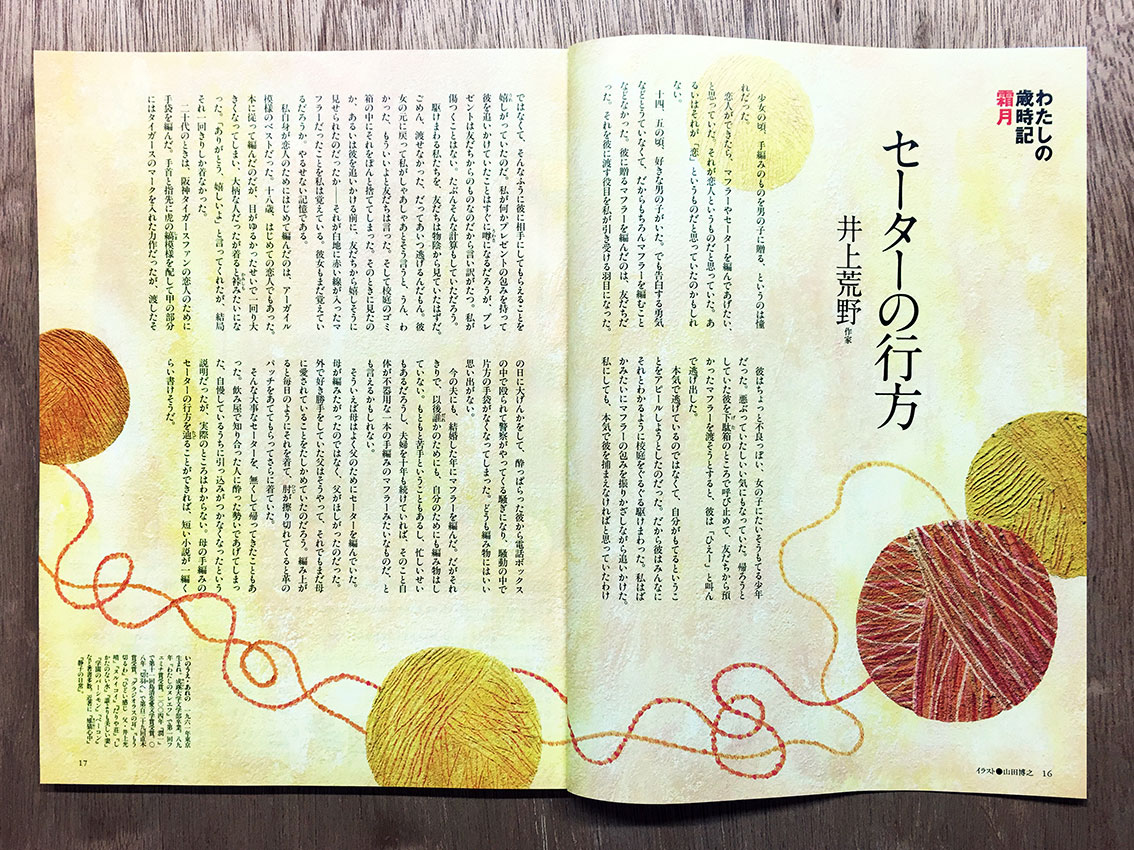 わたしの
歳時記
霜月
セーターの行方
井上荒野 作家
少女の頃、手編みのものを男の子に贈る、というのは憧
れだった。
恋人ができたら、マフラーやセーターを編んであげたい、
と思っていた。それが恋人というものだと思っていた。あ
るいはそれが「恋」というものだと思っていたのかもしれ
ない。
十四、五の頃、好きな男の子がいた。でも告白する勇気
などとうていなくて、だからもちろんマフラーを編むこと
などなかった。彼に贈るマフラーを編んだのは、友だちだ
った。それを彼に渡す役目を私が引き受ける羽目になった。
彼はちょっと不良っぽい、女の子にたいそうもてる少年
だった。悪ぶっていたしいい気にもなっていた。帰ろうと
していた彼を下駄箱のところで呼び止めて、友だちから預
かったマフラーを渡そうとすると、彼は「ひえー」と叫ん
で逃げ出した。
本気で逃げているのではなくて、自分がもてるというこ
とをアピールしようとしたのだった。だから彼はみんなに
それとわかるように校庭をぐるぐる駆けまわった。私はば
かみたいにマフラーの包みを振りかざしながら追いかけた。
私にしても、本気で彼を捕まえなければと思っていたわけ
イラスト●山田博之 16
ではなくて、そんなふうに彼に相手にしてもらえることを
嬉しがっていたのだ。私が何かプレゼントの包みを持って
彼を追いかけていたことはすぐに噂になるだろうが、プレ
ゼントは友だちからのものなのだから言い訳がたつ。私が
傷つくことはない。たぶんそんな計算もしていただろう。
駆けまわる私たちを、友だちは物陰から見ていたはずだ。
ごめん、渡せなかった、だってあいつ逃げるんだもん。彼
女の元に戻って私がしゃあしゃあとそう言うと、うん、わ
かった、もういいよと友だちは言った。そして校庭のゴミ
箱の中にそれをぽんと捨ててしまった。そのときに見たの
か、あるいは彼を追いかける前に、友だちから嬉しそうに
見せられたのだったか――それが白地に赤い線が入ったマ
フラーだったことを私は覚えている。彼女もまだ覚えてい
るだろうか。やるせない記憶である。
私自身が恋人のためにはじめて編んだのは、アーガイル
模様のベストだった。十八歳、はじめての恋人でもあった。
本に従って編んだのだが、目がゆるかったせいで一回り大
きくなってしまい、大柄な人だったが着ると裃みたいにな
った。「ありがとう、嬉しいよ」と言ってくれたが、結局
それ一回きりしか着なかった。
二十代のときは、阪神タイガースファンの恋人のために
手袋を編んだ。手首と指先に虎の縞模様を配して甲の部分
にはタイガースのマークを入れた力作だったが、渡したそ
の日に大げんかをして、酔っぱらった彼から電話ボックス
の中で殴られて警察がやってくる騒ぎになり、騒動の中で
片方の手袋がなくなってしまった。どうも編み物にはいい
思い出がない。
今の夫にも、結婚した年にマフラーを編んだ。だがそれ
きりで、以後誰かのためにも、自分のためにも編み物はし
ていない。もともと苦手ということもあるし、忙しいせい
もあるだろうし、夫婦を十年も続けていれば、そのこと自
体が不器用な一本の手編みのマフラーみたいなものだ、と
も言えるかもしれない。
そういえば母はよく父のためにセーターを編んでいた。
母が編みたがったのではなく、父がほしがったのだった。
外で好き勝手をしていた父はそうやって、それでもまだ母
に愛されていることをたしかめていたのだろう。編み上が
ると毎日のようにそれを着て、肘が擦り切れてくると革の
パッチをあててもらってさらに着ていた。
そんな大事なセーターを、無くして帰ってきたこともあ
った。飲み屋で知り合った人に酔った勢いであげてしまっ
た、自慢しているうちに引っ込みがつかなくなったという
説明だったが、実際のところはわからない。母の手編みの
セーターの行方を辿ることができれば、短い小説が一編く
らい書けそうだ。
いのうえ・あれの 一九六一年東京
生まれ。成蹊大学文学部卒業。八九
年「わたしのヌレエフ」で第一回フ
ェミナ賞受賞。二〇〇四年『潤一』
で第十一回島清恋愛文学賞受賞。〇
八年『切羽へ』で第百三十九回直木
賞受賞。『グラジオラスの耳』『もう
切るわ』『ひどい感じ 父・井上光
晴』『ヌルイコイ』『だりや荘』『し
かたのない水』『誰よりも美しい妻』
『学園のパーシモン』『ベーコン』
など著書多数。近著に
『静子の日常』
17